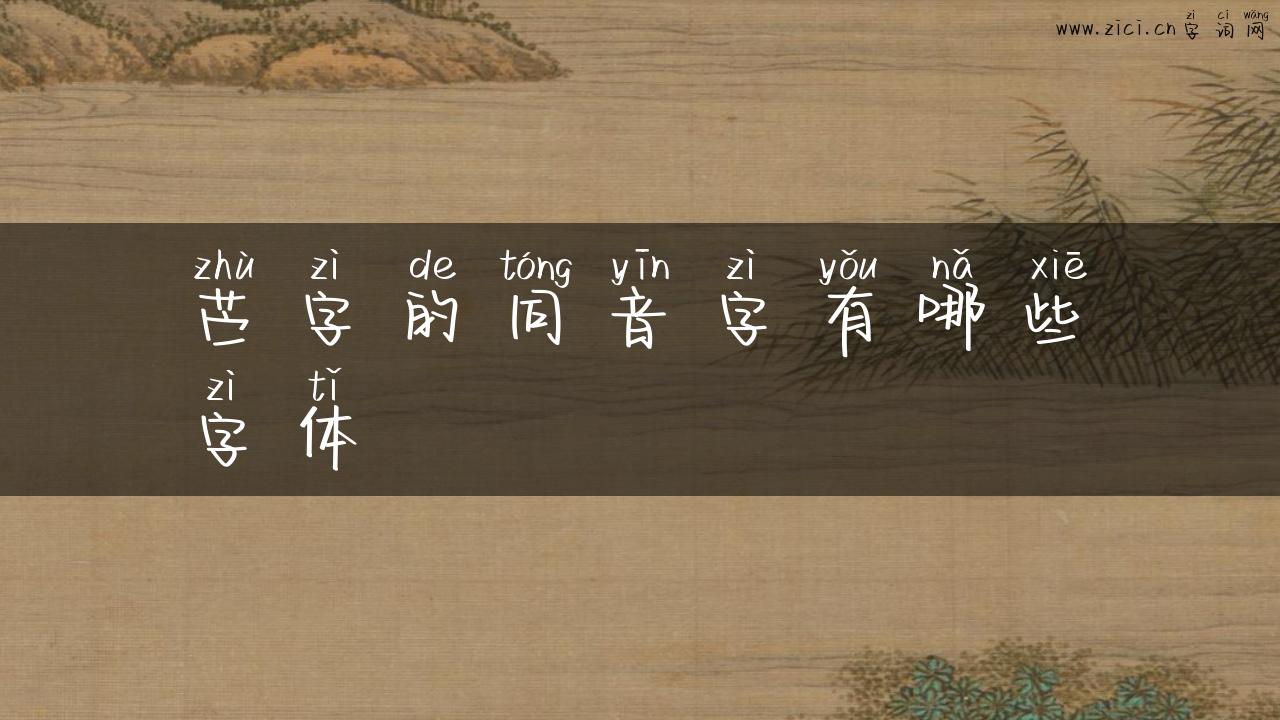 zì cí wǎng
www.zici.cn字词网
zhù zì de tóng yīn zì yǒu nǎ xiē
苎字的同音字有哪些
zì tǐ
字体